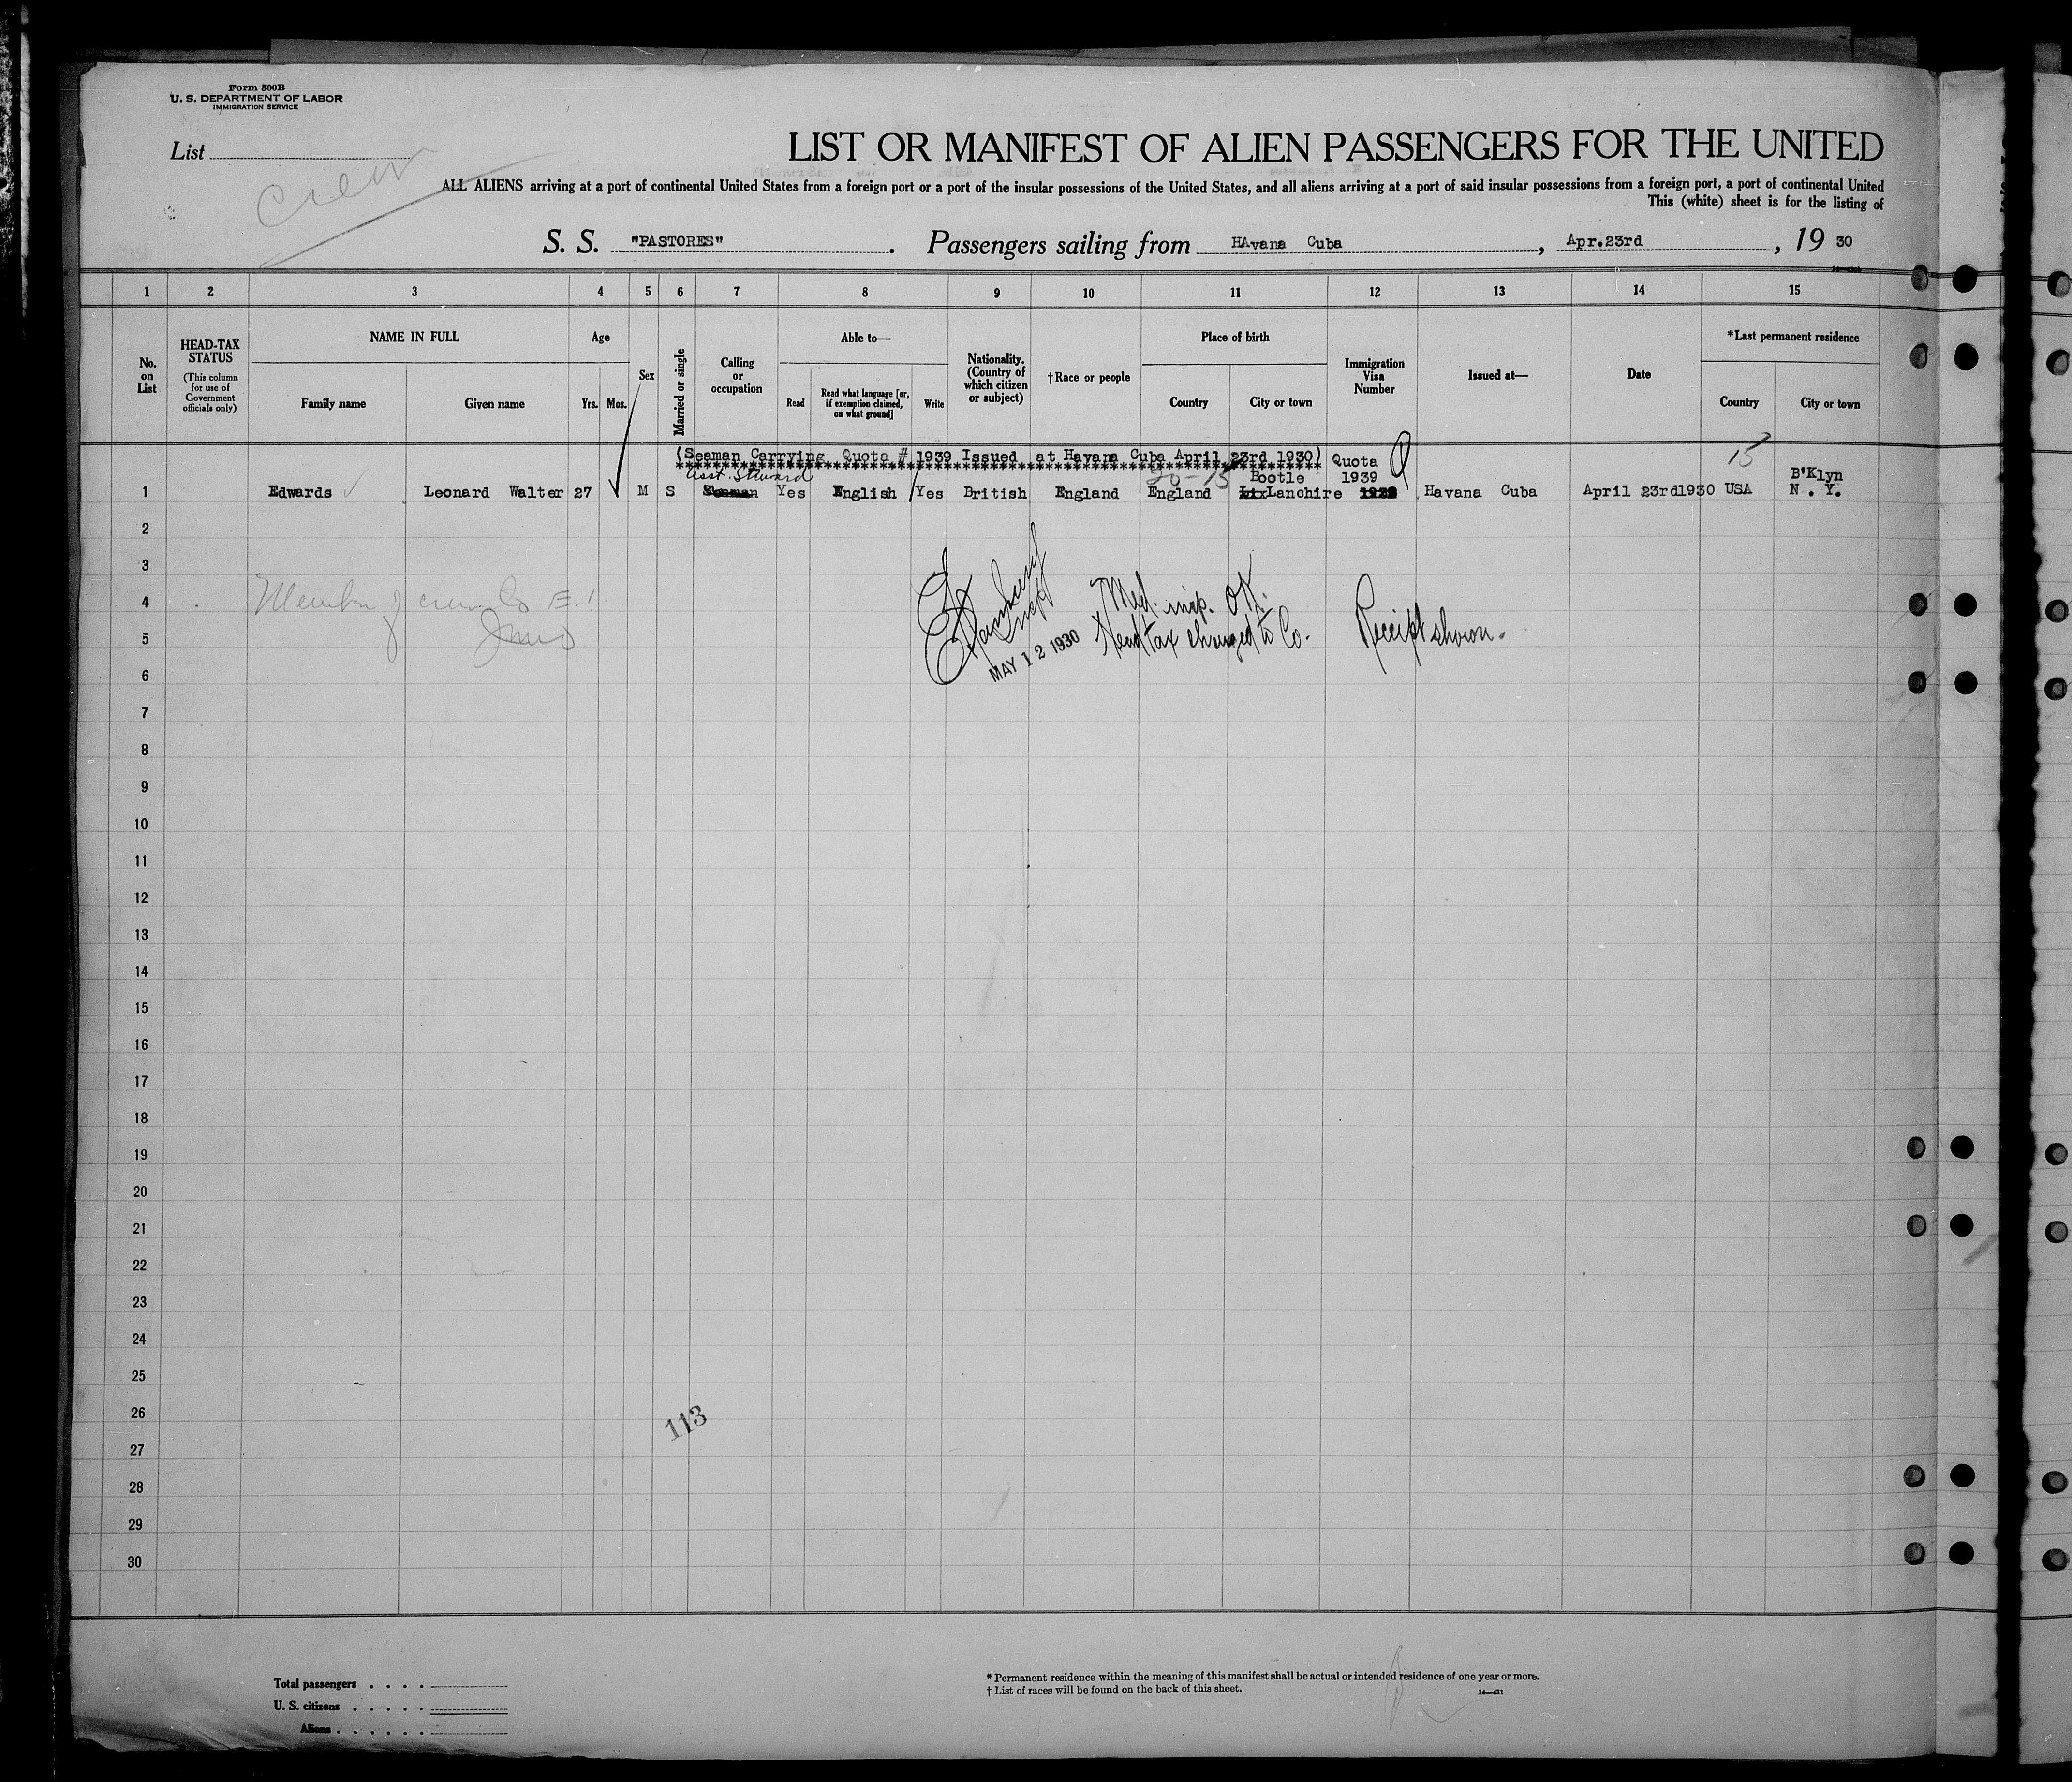 Form 500B
U. S. DEPARTMENT OF LABOR
IMMIGRATION SERVICE
List
Crew
LIST OR MANIFEST OF ALIEN PASSENGERS FOR THE UNITED
ALL ALIENS arriving at a port of continental United States from a foreign port or a port of the insular possessions of the United States, and all aliens arriving at a port of said insular possessions from a foreign port, a port of continental United
This (white) sheet is for the listing of
S. S. "PASTORES". Passengers sailing from HAvana Cuba, Apr.23rd, 19 30
1 2 3 4 5 6 7 8 9 10 11 12 13 14 15
No. on List
HEAD-TAX STATUS
(This column for use of Government officials only)
NAME IN FULL
Family name
Given name
Age
Yrs. Mos.
Sex
Married or single
Calling or occupation
Able to—
Read
Read what language [or, if exemption claimed, on what ground]
Write
Nationality. (Country of which citizen or subject)
†Race or people
Place of birth
Country
City or town
Immigration Visa Number
Issued at—
Date
*Last permanent residence
Country
City or town
(Seaman Carrying Quota # 1939 Issued at Havana Cuba April 23rd 1930) Quota
15
Asst. Steward
20-15
Bootle 1939 B'Klyn
1 Edwards Leonard Walter 27 M S Seaman Yes English Yes British England England Lanchire Havana Cuba April 23rd1930 USA N. Y.
2
3
4
Member of crew
5
6
Med. insp. OK.
Head tax charged to Co. Receipt shown.
MAY 12 1930
7
8
9
10
11
12
13
14
15
16
17
18
19
20
21
22
23
24
25
26
113
27
28
29
30
Total passengers
U. S. citizens
Aliens
* Permanent residence within the meaning of this manifest shall be actual or intended residence of one year or more.
† List of races will be found on the back of this sheet.